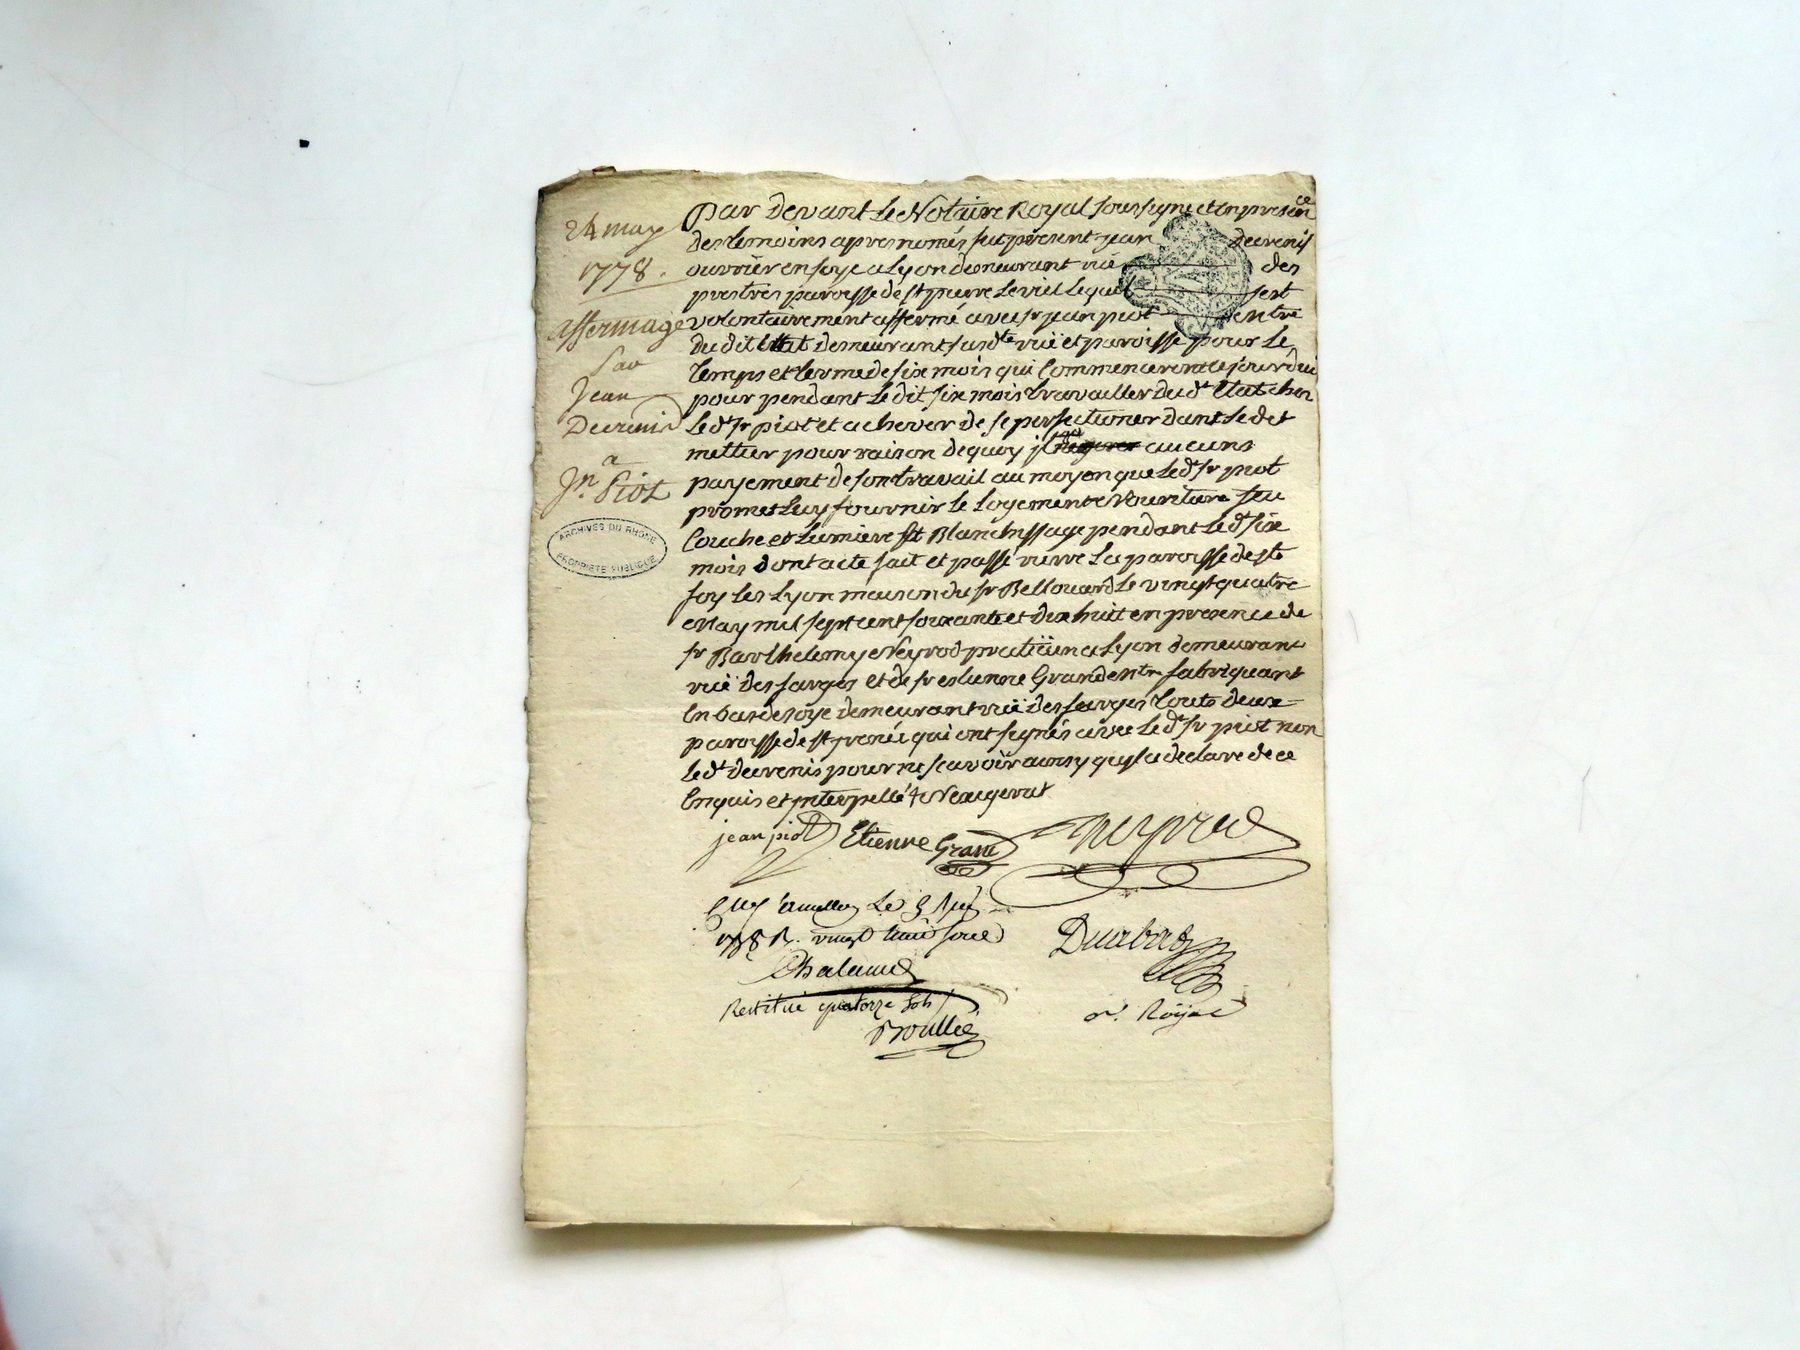 24 may
1778.
affermage
par
Jean
Decrenis
a
Jn. Piot
ARCHIVES DU RHÔNE
PROPRIÉTÉ PUBLIQUE
Par Devant Le Notaire Royal soussigné et en presence
des temoins apres només fut présent jean decrenis
ouvrier en soye a Lyon demeurant rüe des
prestres paroisse de st pierre Le viel Lequel sest
volontairement affermé avec sr jean piot
du dit Etat demeurant susdte rüe et paroisse pour Le
temps et terme de six mois qui Commenceront ce jourdui
pour pendant Le dit six mois travailler du dt Etat chez
Le dt sr piot et achever de se perfectioner dans Le dt
mettier pour raison de quoy il aucuns
payement de son travail au moyen que Le dt sr piot
promet Luy fournir Le Logement Nouriture feu
Couche et Lumiere et Blanchissage pendant Le dt six
mois dont acte fait et passé rierre La paroisse de ste
foy Les Lyon maison du sr Bellouard Le vingt quatre
May mil sept cent soixante et dix huit en presence de
sr Barthelemy Neyrod praticien a Lyon demeurant
rüe des farges et de sr estienne Grand mtre fabriquant
En bas de soye demeurant rüe des farges touts deux
paroisse de st irenée qui ont signés avec Le dt sr piot non
Le dt decrenis pour ne scavoir ainsy quil a declaré de ce
Enquis et interpellé
jean piot Etienne Grand neyrod
Le 8
vingt huit sous
Restitué quatorze sols